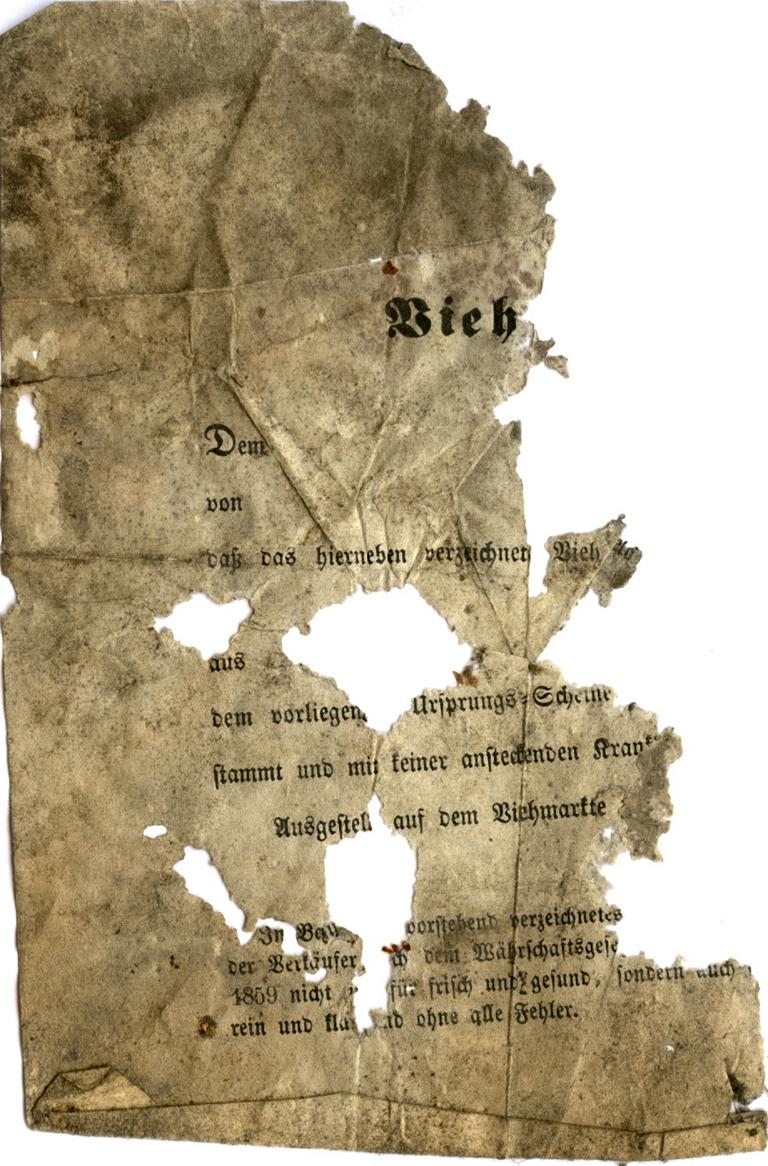 Vieh
Dem
von
daß das hierneben verzeichnet Vieh
aus
dem vorliegen Ursprungs-Scheine
stammt und mit keiner ansteckenden Krank
Ausgestell auf dem Viehmarkte
In Be vorstehend verzeichnetes
der Verkäufer ch dem Währschaftsgese
1859 nicht für frisch und gesund, sondern auch
rein und kla nd ohne alle Fehler.